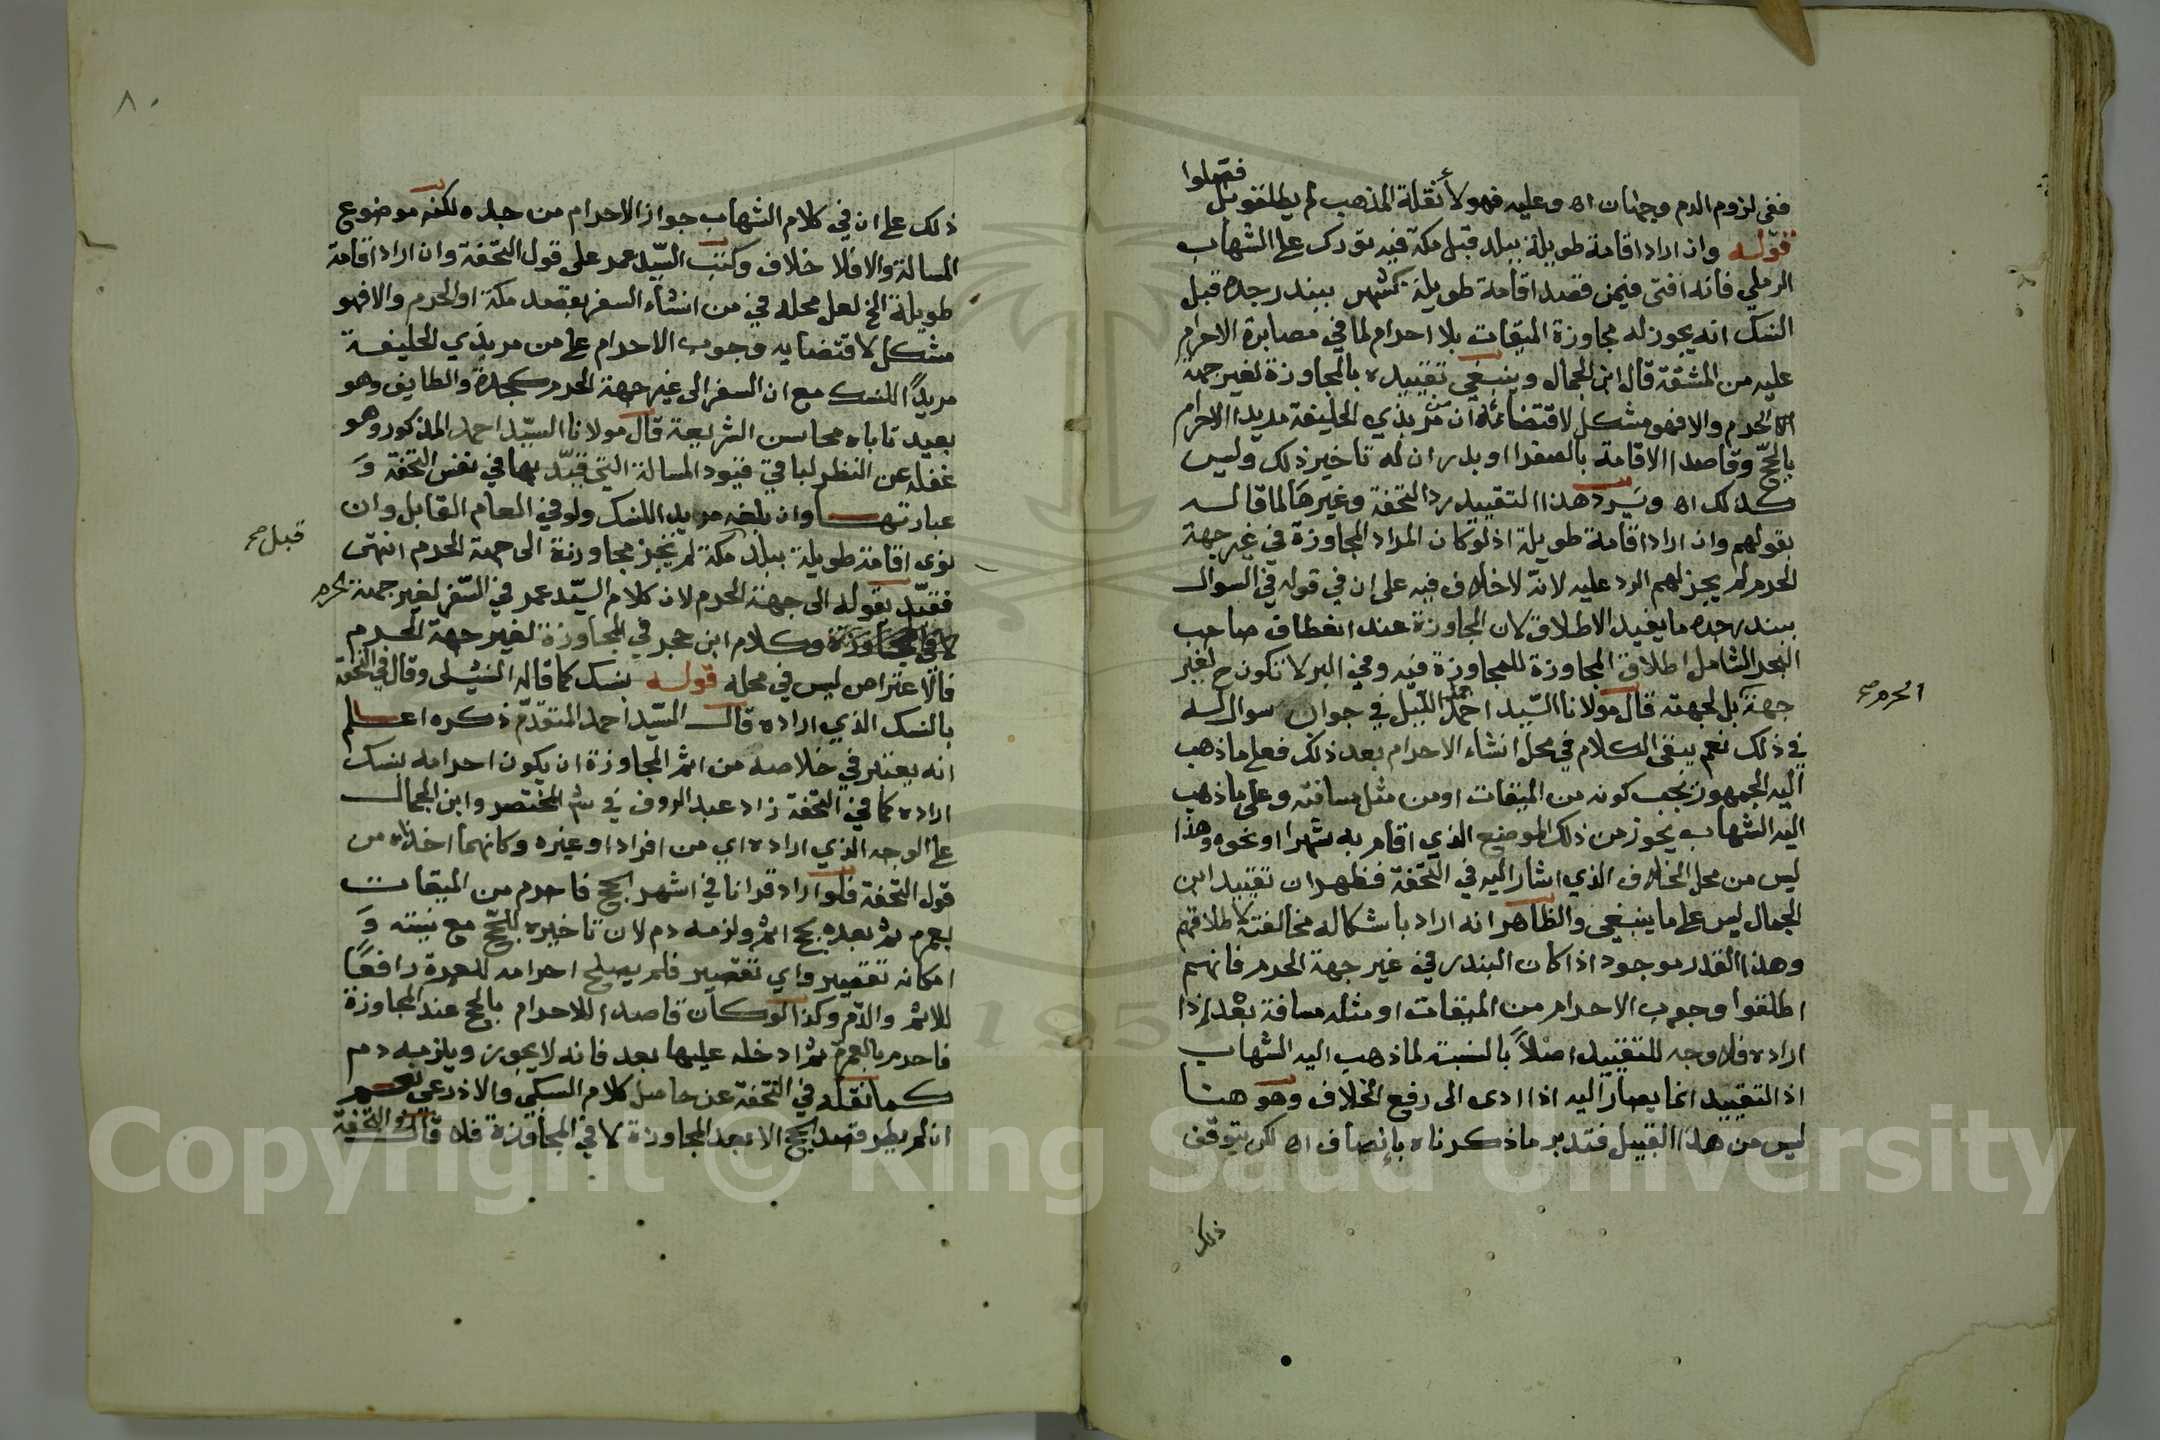 فصلوا
ففي لزوم الدم وجهان اه وعليه فهولأ نقلة المذهب لم يطلقوبل
قوله وان اراد اقامة طويلة ببلد قبل مكة فيه تورك على الشهاب
الرملي فانه افتى فيمن قصد اقامة طويلة كشهر ببندر جده قبل
النسك انه يجوز له مجاوزة الميقات بلا احرام لما في مصابرة الاحرام
عليه من المشقة قال ابن الجمال وينبغي تقييده بالمجاوزة لغير جهة
الحرم والا فهو مشكل لاقتضائه ان من مر بذي الحليفة مريدا الاحرام
بالحج وقاصدا الاقامة بالصفرا او بدر ان له تاخير ذلك وليس
كذلك اه ويرد هذا التقييد رد التحفة وغيرها لما قاله
بقولهم وان اراد اقامة طويلة اذ لو كان المراد المجاوزة في غير جهة
الحرم لم يجز لهم الرد عليه لانه لا خلاف فيه على ان في قوله في السوال
ببندر جده ما يفيد الاطلاق لان المجاوزة عند انعطاف صاحب
البحر الشامل اطلاق المجاوزة للمجاوزة فيه وفي البر لا تكون ح لغير
جهة بل لجهته قال مولانا السيد احمد الليل في جواب سوال له
الحرم صح
في ذلك نعم يبقى الكلام في محل انشاء الاحرام بعد ذلك فعلى ما ذهب
اليه الجمهور يجب كونه من الميقات او من مثل مسافته وعلى ما ذهب
اليه الشهاب يجوز من ذلك الموضع الذي اقام به شهرا او نحوه وهذا
ليس من محل الخلاف الذي اشار اليه في التحفة فظهر ان تقييد ابن
الجمال ليس على ما ينبغي والظاهر انه اراد باشكاله مخالفته لاطلاقهم
وهذا القدر موجود اذا كان البندر في غير جهة الحرم فانهم
اطلقوا وجوب الاحرام من الميقات او مثله مسافة بعد اذا
اراده فلا وجه للتقييد اصلاً بالنسبة لما ذهب اليه الشهاب
اذ التقييد انما يصار اليه اذا ادى الى رفع الخلاف وهو هنا
ليس من هذا القبيل فتدبر ما ذكرناه بانصاف اه لكن يتوقف
ذلك
٨٠
ذلك على ان في كلام الشهاب جواز الاحرام من جده لكنه موضوع
المسالة والا فلا خلاف وكتب السيد عمر على قول التحفة وان اراد اقامة
طويلة الخ لعل محله في من انشاء السفر بقصد مكة او الحرم والا فهو
مشكل لاقتضايه وجوب الاحرام على من مر بذي الحليفة
مريداً للنسك مع ان السفر الى غير جهة الحرم كجدة والطايف وهو
بعيد تاباه محاسن الشريعة قال مولانا السيد احمد المذكور وهو
غفلة عن النظر لباقي قيود المسالة التي قيد بها في نفس التحفة و
عبارتها وان بلغه مريدا للنسك ولو في العام القابل وان
نوى اقامة طويلة ببلد مكة لم تجز مجاوزته الى جهة الحرم انتهى
قبل صح
فقيد بقوله الى جهة الحرم لان كلام السيد عمر في السفر لغير جهة الحرم
لا في المجاوزة وكلام ابن حجر في المجاوزة لغير جهة الحرم
فالاعتراض ليس في محله قوله بنسك كما قاله الشلي وقال في التحفة
بالنسك الذي اراده قال السيد احمد المتقدم ذكره اعلم
انه يعتبر في خلاصه من اثم المجاوزة ان يكون احرامه بنسك
اراده كما في التحفة زاد عبد الروف في ش المختصر وابن الجمال
على الوجه الذي اراده اي من افراد او غيره وكانهما اخذاه من
قول التحفة فلو اراد قرانا في اشهر الحج فاحرم من الميقات
بعمرة ثم بعده بحج اثم ولزمه دم لان تاخيره للحج مع نيته و
امكانه تقصير واي تقصير فلم يصلح احرامه للعمرة رافعا
للاثم والدم وكذا لو كان قاصدا للاحرام بالحج عند المجاوزة
فاحرم بالعمرة ثم ادخله عليها بعد فانه لا يجوز ويلزمه دم
كما نقله في التحفة عن حاصل كلام السبكي والاذرعي نعم
ان لم يطر قصد الحج الا بعد المجاوزة لا في المجاوزة فلا قال في التحفة
Copyright © King Saud University
1957